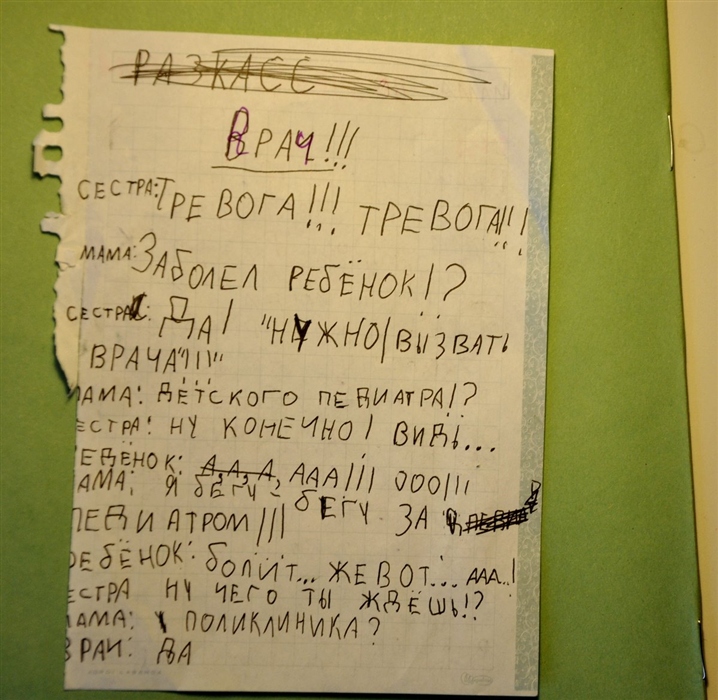 РАЗКАСС
ВРАЧ!!!
СЕСТРА: ТРЕВОГА!!! ТРЕВОГА!!!
МАМА: ЗАБОЛЕЛ РЕБЁНОК!?
СЕСТРА: ДА! "НУЖНО ВЫЗВАТЬ
ВРАЧА"!!!"
МАМА: ДЕТСКОГО ПЕДИАТРА!?
ЕСТРА: НУ КОНЕЧНО! ВИДЬ...
ЕБЁНОК: А, А, А, ААА!!! ООО!!!
АМА: Я БЕГУ - БЕГУ ЗА
ПЕДИАТРОМ!!!
РЕБЁНОК: БОЛИТ... ЖЕВОТ... ААА..!
ЕСТРА НУ ЧЕГО ТЫ ЖДЁШЬ!?
МАМА: ПОЛИКЛИНИКА?
ВРАЧ: ДА